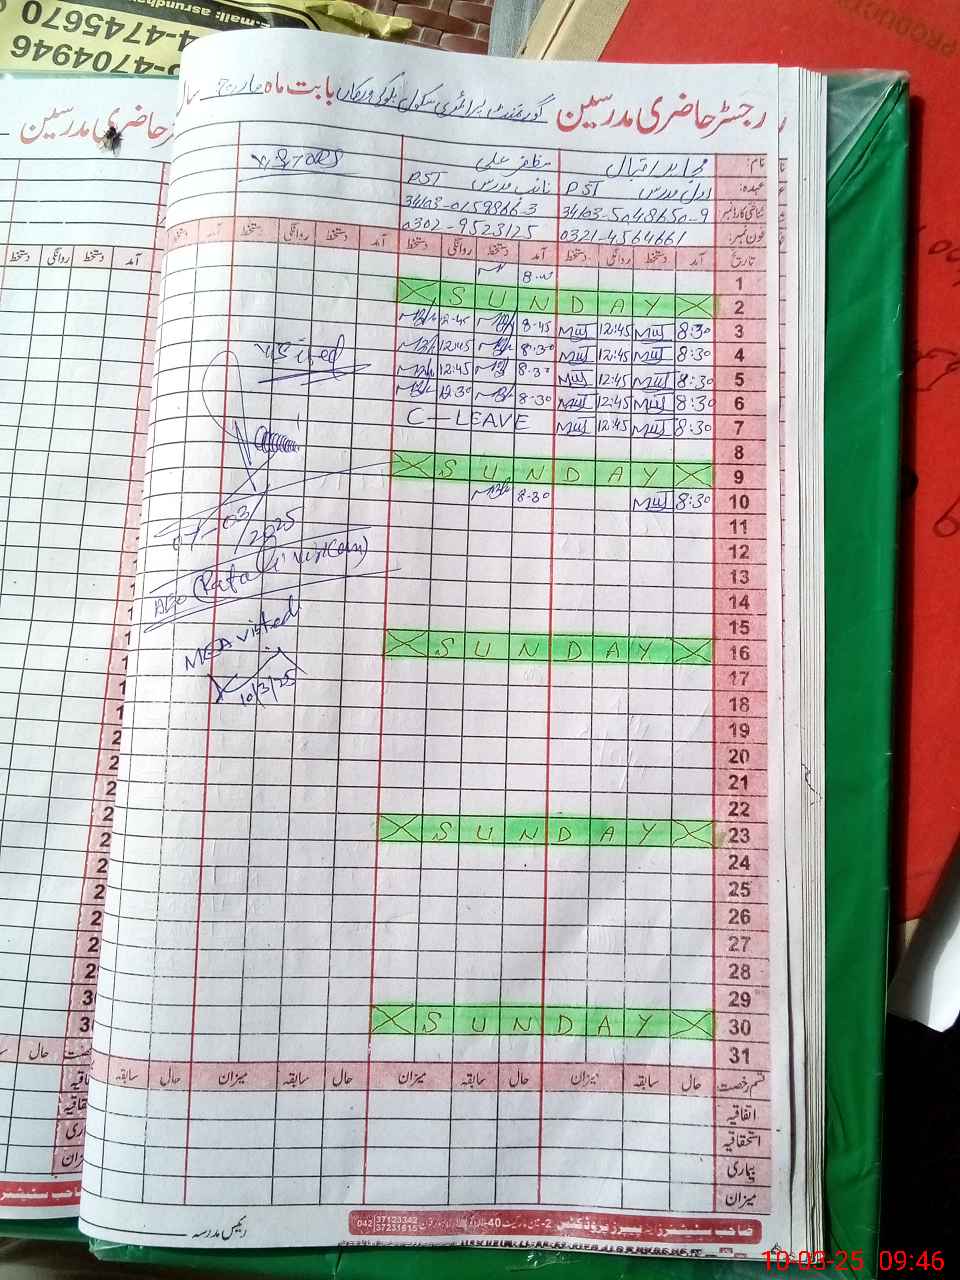 4-4745670
4704946
PRODUCT
رجسٹر حاضری مدرسین گورنمنٹ پرائمری سکول بابت ماہ مارچ سال
حاضری مدرسین
نام: اقبال مظفر علی VISITORS
عہدہ: اول مدرس PST نائب مدرس PST
شناختی کارڈ نمبر: 34103-5048650-9 34103-0159866-3
فون نمبر: 0321-4564661 0302-9523125
تاریخ آمد دستخط روانگی دستخط آمد دستخط روانگی دستخط آمد دستخط روانگی دستخط آمد دستخط
1
2 SUNDAY
3 8:30 12:45 8-45 12-45
4 8:30 12:45 8-30 12:45
5 8:30 12:45 8-30 12:45
6 8:30 12:45 8-30 12:30
7 8:30 12:45 C-LEAVE
8
9 SUNDAY
10 8:30 8-30
11
12
13
14
15
16 SUNDAY
17
18
19
20
21
22
23 SUNDAY
24
25
26
27
28
29
30 SUNDAY
31
Visited
07-03/2025
AEO
MEA visited
10/3/25
قسم رخصت حال سابقہ میزان حال سابقہ میزان حال سابقہ میزان حال سابقہ
اتفاقیہ
استحقاقیہ
بیماری
میزان
042 37123342
37231515
ریکس مدرسہ
10-03-25 09:46